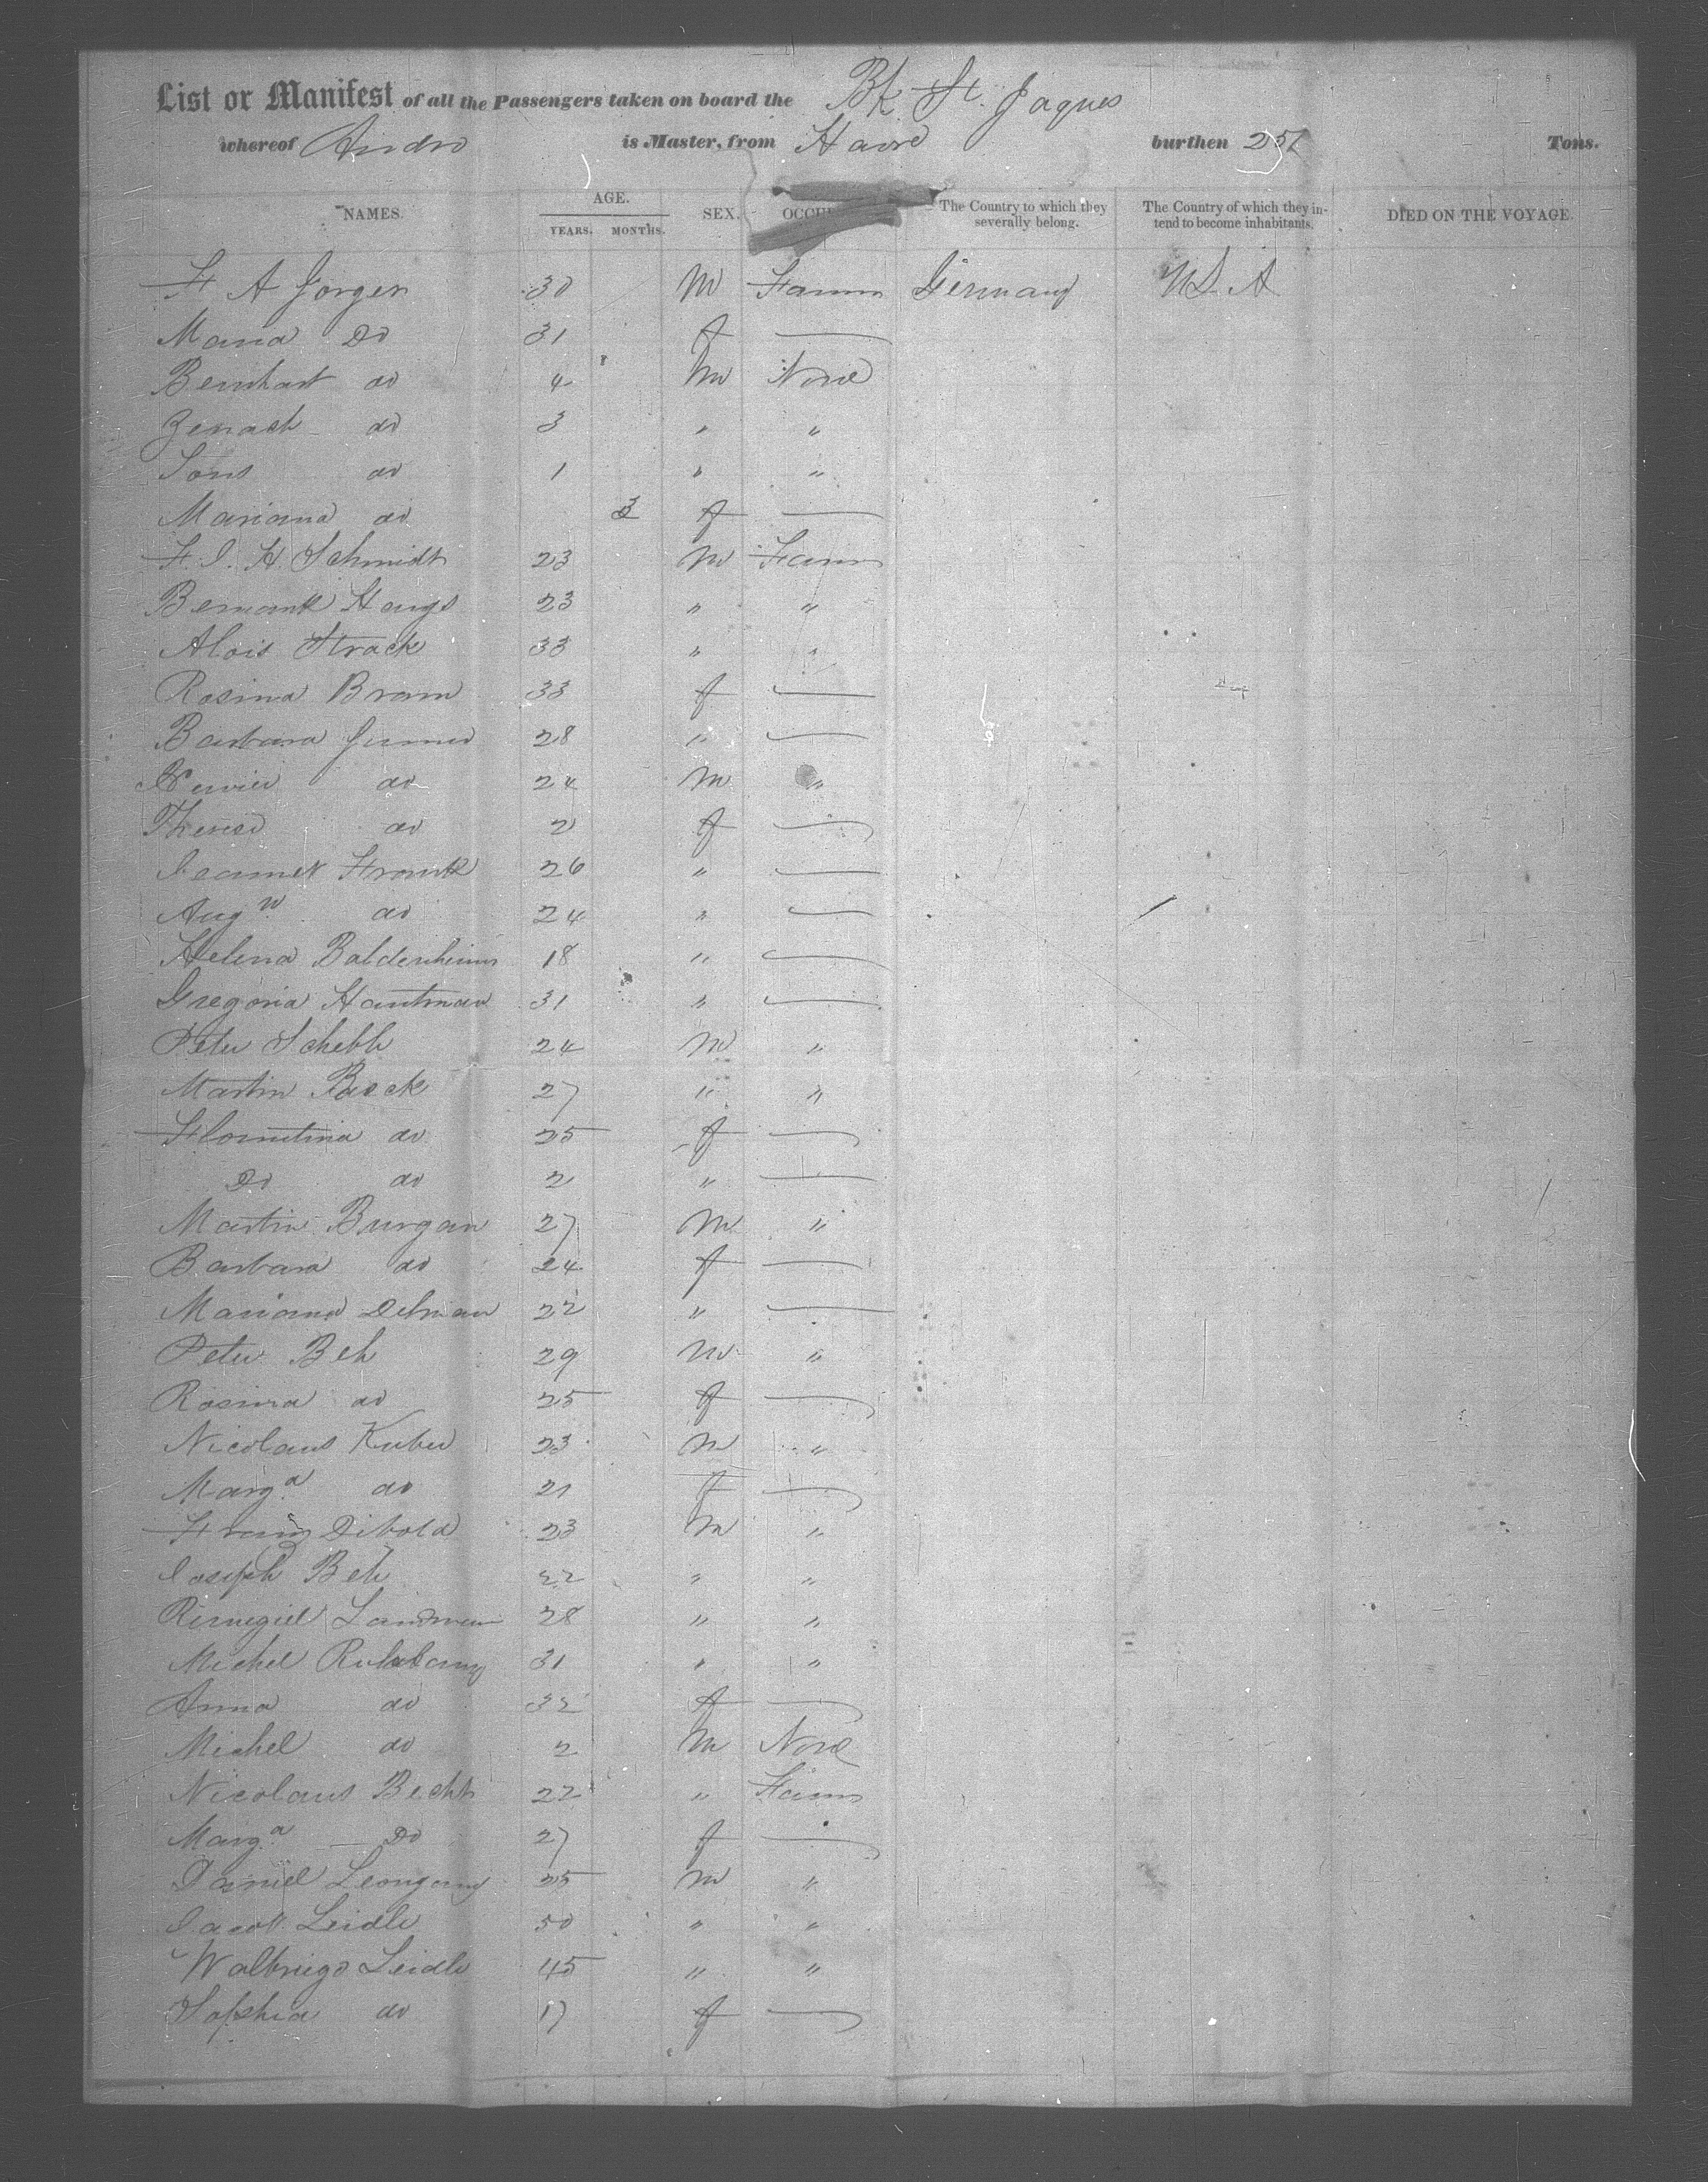 List or Manifest of all the Passengers taken on board the Bk St. Jaques
whereof Andro is Master, from Havre burthen 257 Tons.
NAMES. AGE. YEARS. MONTHS. SEX. OCCU The Country to which they severally belong. The Country of which they intend to become inhabitants. DIED ON THE VOYAGE.
F A Jorger 30 M Farmr Germany U S A
Maria Do 31 f —
Bernhart do 4 M None
Zenach do 3 " "
do 1 " "
Mariana do 3 f —
F. J. H. Schmidt 23 M Farmr
Haugs 23 " "
Alois Strack 33 " "
Rosina Bram 33 f —
Barbara 28 " —
do 24 M "
Therese do 2 f —
Frank 26 " —
Aug do 24 " —
Helena Baldenheimr 18 " —
Gregoria Hautman 31 " —
Peter Schebb 24 M "
Martin Back 27 " "
Florentina do 25 f —
Do do 2 " —
Martin Burgan 27 M "
Barbara do 24 f —
Mariana Delman 22 " —
Peter Beh 29 M "
Rosina do 25 f —
Nicolaus Kuber 23 M "
Marga do 21 f —
Franz Dibold 23 M "
Joseph Beh 22 " "
28 " "
Michel 31 " "
Anna do 32 f —
Michel do 2 M None
Nicolaus Becht 22 " Farmr
Marga Do 27 f —
Daniel 25 M "
Jacob Leidle 50 " "
Leidle 45 " "
Sophia do 17 f —